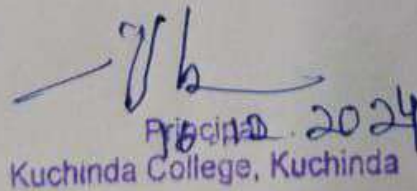 Principal
16.12.2024
Kuchinda College, Kuchinda